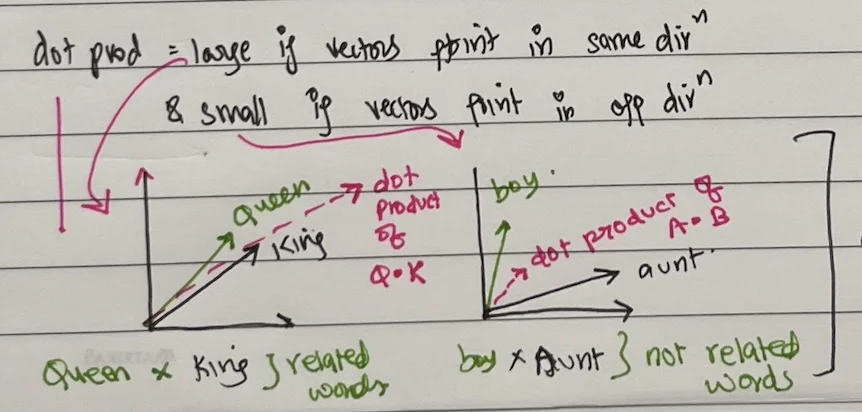 dot prod = large if vectors point in same dirⁿ
& small if vectors point in opp dirⁿ
Queen
King
dot
product
of
Q•K
boy.
dot product of
A•B
aunt.
Queen x King } related
words
boy x Aunt } not related
words